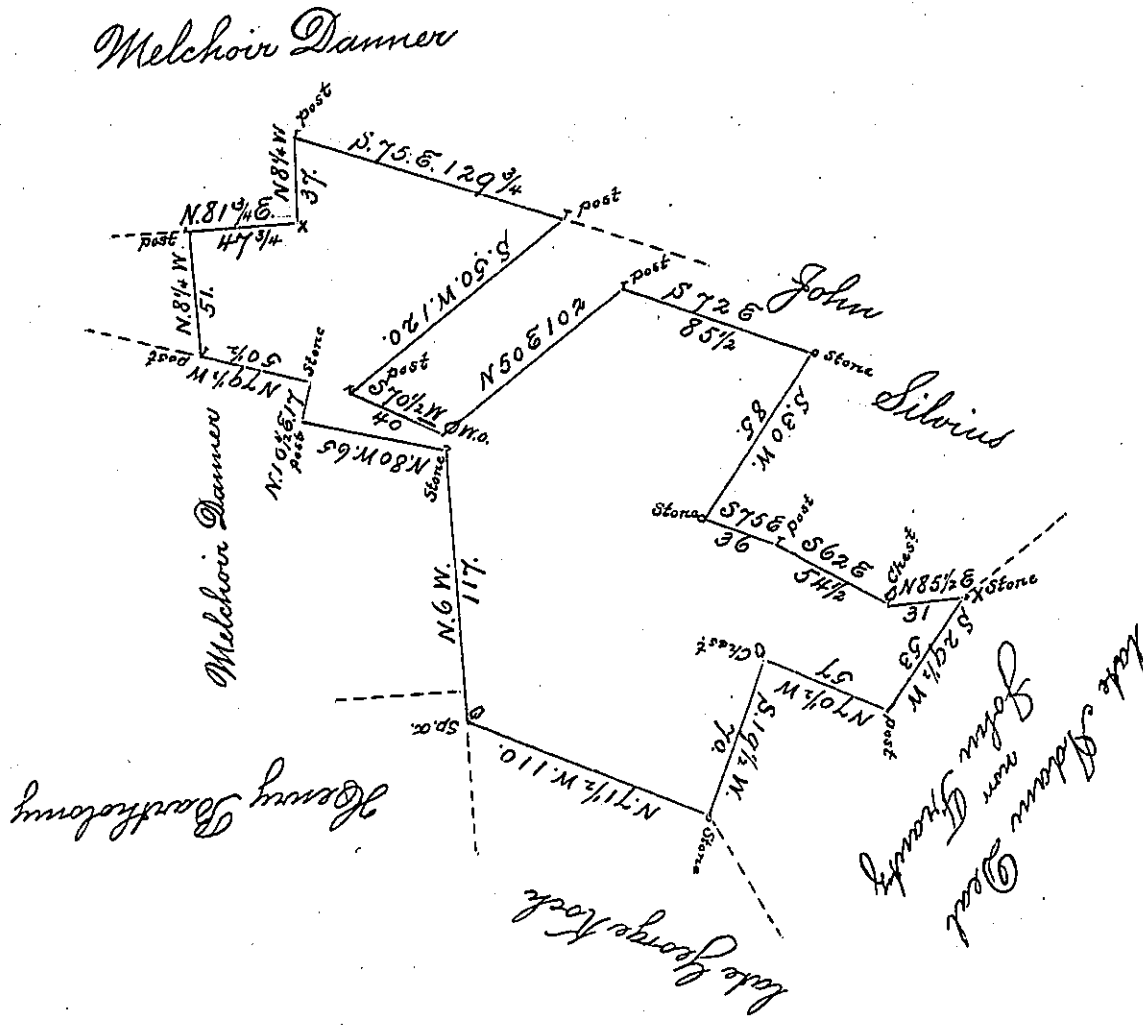 Melchoir Danner
post
N8¼W
37.
S.75.E.129¾
post
N.81¾E.
47¾
x
post
N.8¼W.
51.
post
N79½W
50½
Stone
N.10½E.17
post
N.80W.65
Stone
S.50.W.120.
post
S70½W
40
W.O.
N50E102
post
S72E
85½
Stone
John
Silvius
S.30W.
85.
Stone
S75E
36
post
S62E
54½
Chest
N85½E
31
x Stone
S29½W
53
post
N70½W
57
Chest.
S.19½W.
70.
Stone
N.71½W.110.
Sp.o.
N.6W.
117.
Melchoir Danner
Henry Bartholomy
late George Koch
late Adam Deal
now
John Frantz